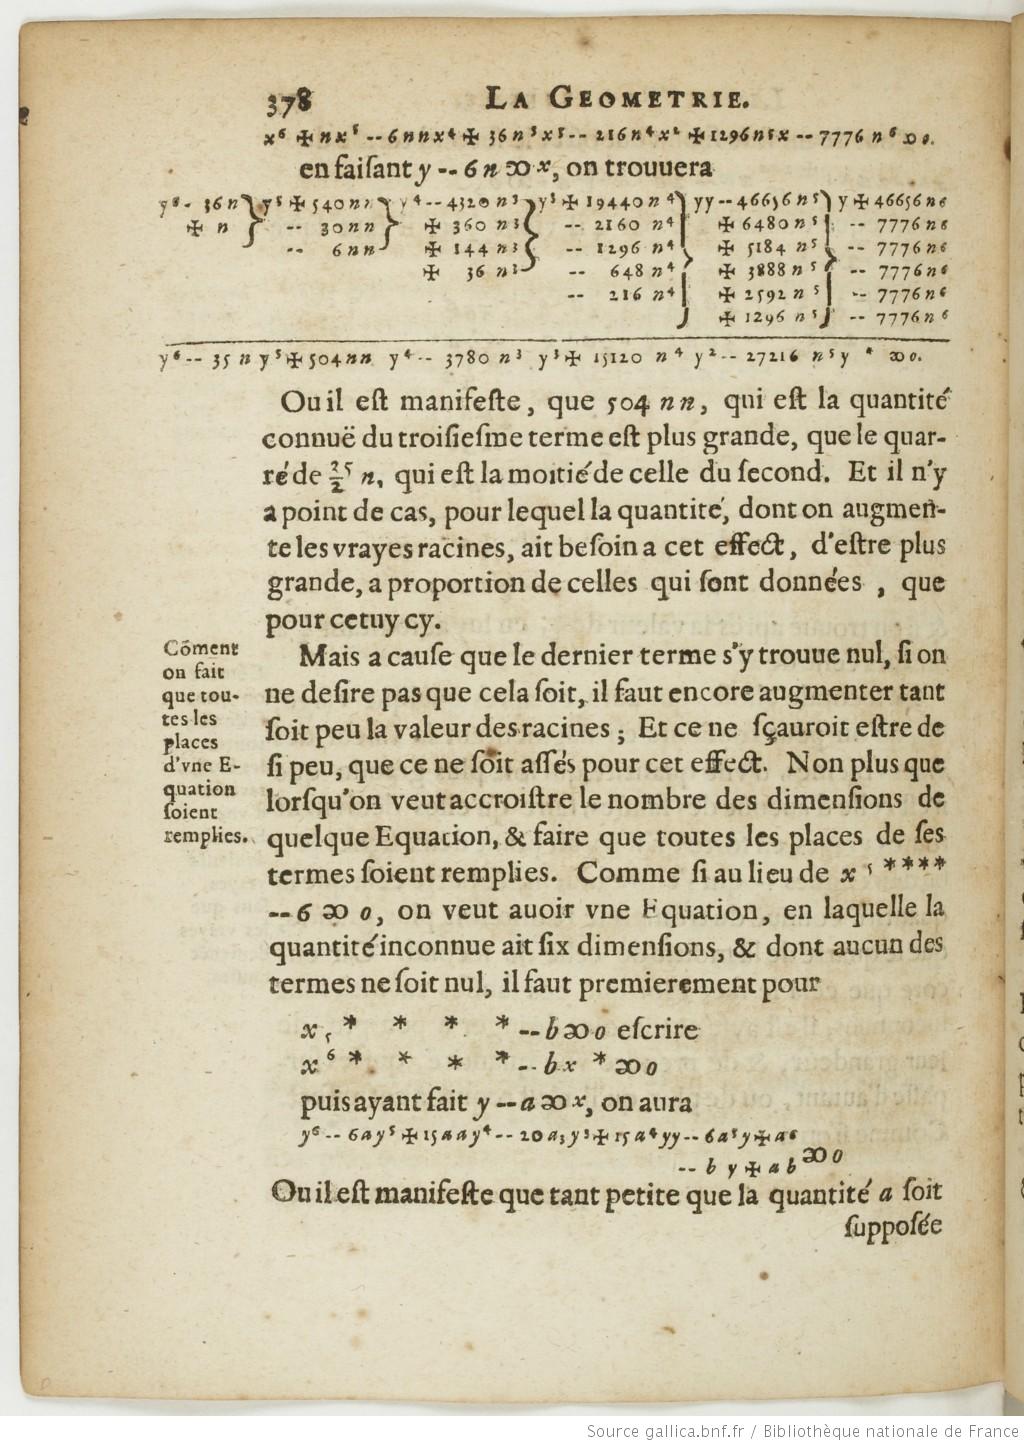 378 LA GEOMETRIE.
x⁶ ✠ nx⁵ -- 6nnx⁴ ✠ 36n³x³ -- 216n⁴x² ✠ 1296n⁵x -- 7776n⁶ ꝏ 0.
en faiſant y -- 6n ꝏ x, on trouuera
y⁶ - 36n } y⁵ ✠ 540nn } y⁴ -- 4320n³ } y³ ✠ 19440n⁴ } yy -- 46656n⁵ } y ✠ 46656n⁶
✠ n -- 30nn ✠ 360n³ -- 2160n⁴ ✠ 6480n⁵ -- 7776n⁶
-- 6nn ✠ 144n³ -- 1296n⁴ ✠ 5184n⁵ -- 7776n⁶
✠ 36n³ -- 648n⁴ ✠ 3888n⁵ -- 7776n⁶
-- 216n⁴ ✠ 2592n⁵ -- 7776n⁶
✠ 1296n⁵ -- 7776n⁶
y⁶ -- 35ny⁵ ✠ 504nn y⁴ -- 3780n³ y³ ✠ 15120n⁴ y² -- 27216n⁵y * ꝏ 0.
Ou il eſt manifeſte, que 504nn, qui eſt la quantité
connuë du troiſieſme terme eſt plus grande, que le quar-
ré de 35/2 n, qui eſt la moitié de celle du ſecond. Et il n'y
a point de cas, pour lequel la quantité, dont on augmen-
te les vrayes racines, ait beſoin a cet effect, d'eſtre plus
grande, a proportion de celles qui ſont données, que
pour cetuy cy.
Cõment
on fait
que tou-
tes les
places
d'vne E-
quation
ſoient
remplies.
Mais a cauſe que le dernier terme s'y trouue nul, ſi on
ne deſire pas que cela ſoit, il faut encore augmenter tant
ſoit peu la valeur des racines; Et ce ne ſçauroit eſtre de
ſi peu, que ce ne ſoit aſſés pour cet effect. Non plus que
lorſqu'on veut accroiſtre le nombre des dimenſions de
quelque Equation, & faire que toutes les places de ſes
termes ſoient remplies. Comme ſi au lieu de x⁵ ****
-- 6 ꝏ 0, on veut auoir vne Equation, en laquelle la
quantité inconnue ait ſix dimenſions, & dont aucun des
termes ne ſoit nul, il faut premierement pour
x₅ * * * * -- b ꝏ 0 eſcrire
x⁶ * * * * -- bx * ꝏ 0
puis ayant fait y -- a ꝏ x, on aura
y⁶ -- 6ay⁵ ✠ 15aay⁴ -- 20a₃y³ ✠ 15a⁴yy -- 6a⁵y ✠ a⁶
-- by ✠ ab ꝏ 0
Ou il eſt manifeſte que tant petite que la quantité a ſoit
ſuppoſée
Source gallica.bnf.fr / Bibliothèque nationale de France